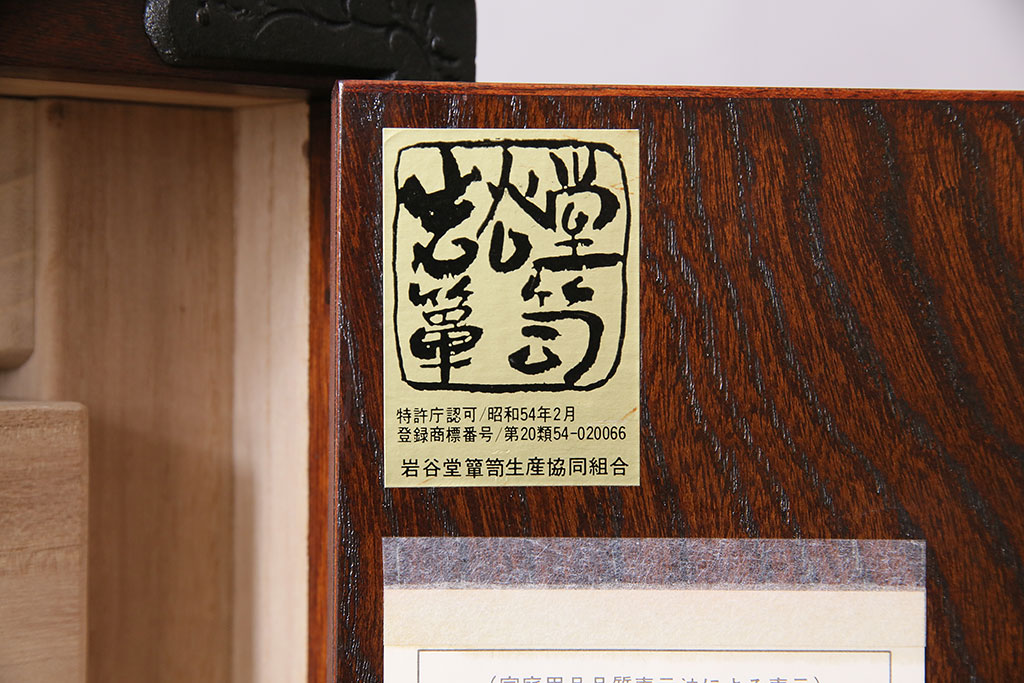 岩谷堂
簞笥
特許庁認可/昭和54年2月
登録商標番号/第20類54-020066
岩谷堂簞笥生産協同組合
(家庭用品品質表示法による表示)